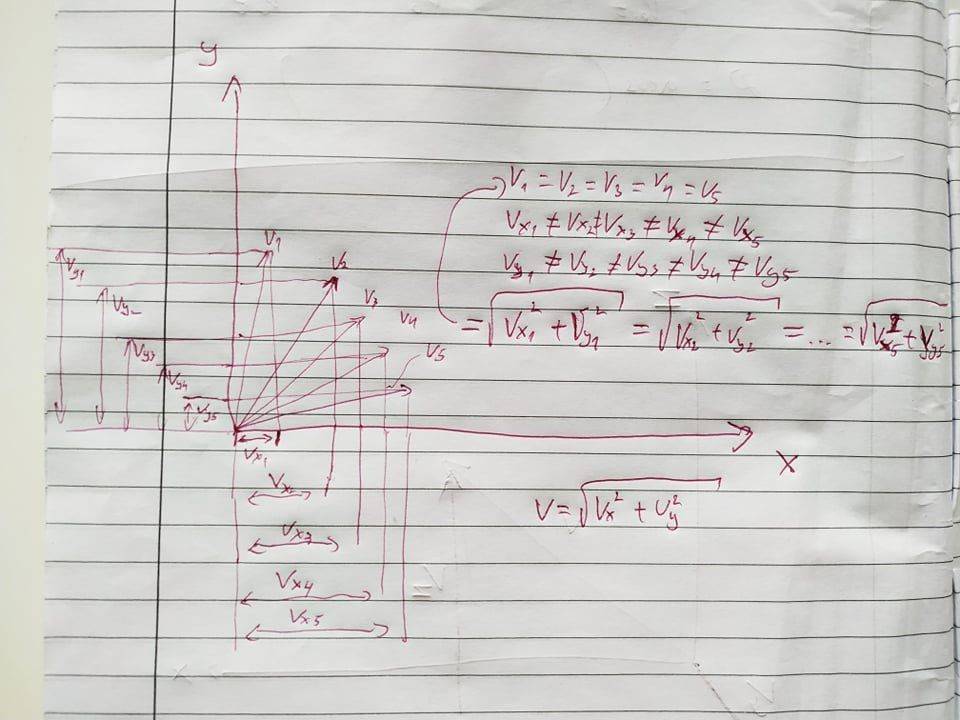 y
V1 = V2 = V3 = V4 = V5
Vx1 ≠ Vx2 ≠ Vx3 ≠ Vx4 ≠ Vx5
Vy1 ≠ Vy2 ≠ Vy3 ≠ Vy4 ≠ Vy5
= √(Vx1² + Vy1²) = √(Vx2² + Vy2²) = ... = √(Vx5² + Vy5²)
V1
V2
V3
V4
V5
Vy1
Vy2
Vy3
Vy4
Vy5
X
Vx1
Vx2
Vx3
Vx4
Vx5
V = √(Vx² + Vy²)